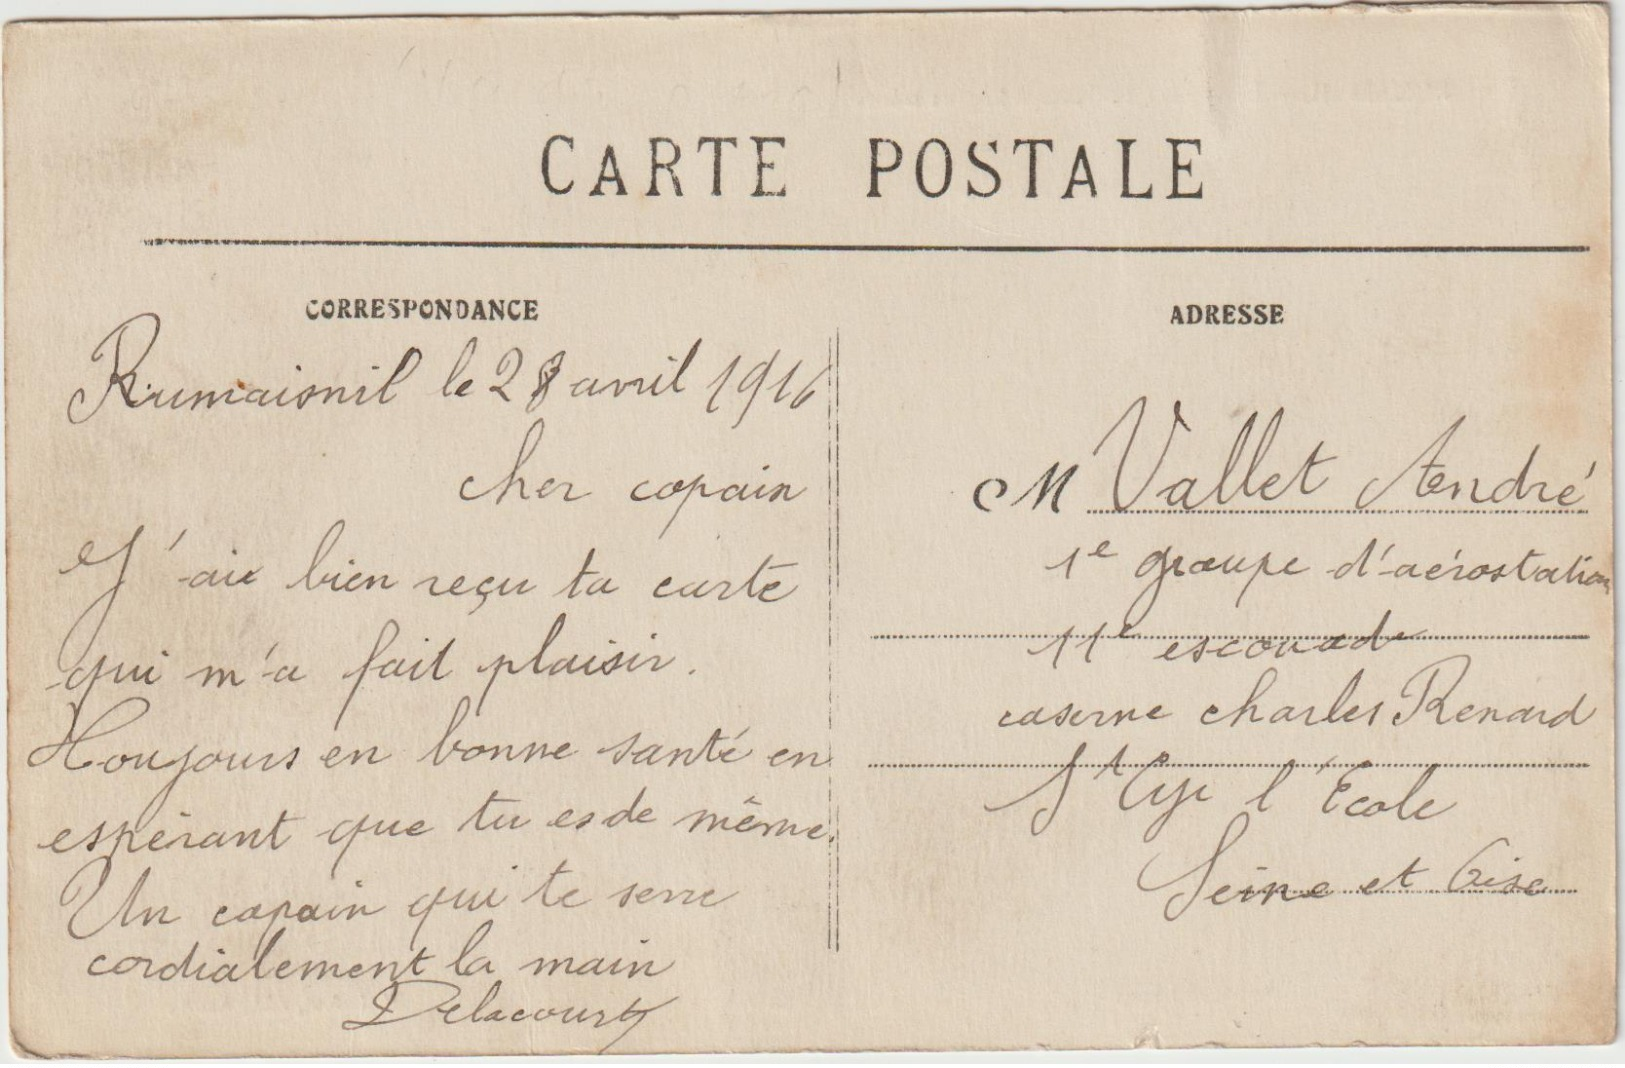 CARTE POSTALE
CORRESPONDANCE
Rumaisnil le 28 avril 1916
cher copain
J'ai bien reçu ta carte
qui m'a fait plaisir.
Toujours en bonne santé en
espérant que tu es de même.
Un copain qui te serre
cordialement la main
Delacourt
ADRESSE
M Vallet André
1e groupe d'aérostation
11e escouade
caserne charles Renard
St Cyr l'Ecole
Seine et Oise